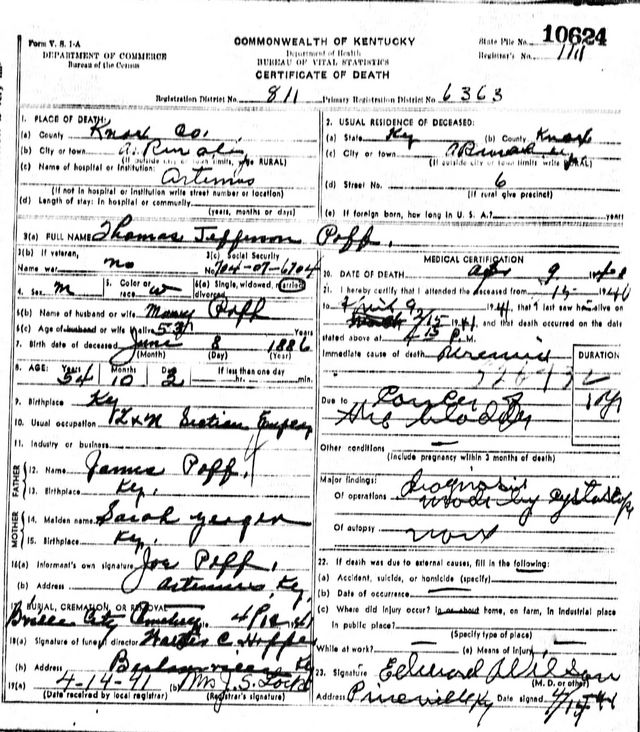 Form V. S. 1-A
DEPARTMENT OF COMMERCE
Bureau of the Census
COMMONWEALTH OF KENTUCKY
Department of Health
BUREAU OF VITAL STATISTICS
CERTIFICATE OF DEATH
State File No. 10624
Registrar's No.
Registration District No. 811 Primary Registration District No. 6363
1. PLACE OF DEATH:
(a) County Knox Co.
(b) City or town
(If outside city or town limits, write RURAL)
(c) Name of hospital or institution:
Artemus
(If not in hospital or institution write street number or location)
(d) Length of stay: In hospital or community
(years, months or days)
2. USUAL RESIDENCE OF DECEASED:
(a) State Ky (b) County Knox
(c) City or town
(If outside city or town limits write RURAL)
(d) Street No. 6
(If rural give precinct)
(e) If foreign born, how long in U. S. A.? years
3(a) FULL NAME Thomas Jefferson Poff.
3(b) If veteran,
Name war no
3(c) Social Security
No. 704-07-6704
4. Sex M 5. Color or race w 6(a) Single, widowed, married divorced
6(b) Name of husband or wife Poff
6(c) Age of husband or wife if alive 53 Years
7. Birth date of deceased June 8 1886
(Month) (Day) (Year)
8. AGE: Years Months Days If less than one day
54 10 2 hr. min.
9. Birthplace Ky
10. Usual occupation L & N Section
11. Industry or business
FATHER
12. Name James Poff
13. Birthplace Ky.
MOTHER
14. Maiden name Sarah
15. Birthplace Ky.
16(a) Informant's own signature Joe Poff.
(b) Address Artemus, Ky.
17. BURIAL, CREMATION, OR REMOVAL
City Cemetery
18(a) Signature of funeral director Walter C. Hopper
(b) Address Ky
19(a) 4-14-41 (b) Mrs J. S. Lock
(Date received by local registrar) (Registrar's signature)
MEDICAL CERTIFICATION
20. DATE OF DEATH Apr 9
21. I hereby certify that I attended the deceased from
to April 9, 1941, that I last saw h alive on
1941, and that death occurred on the date
stated above at P.M.
Immediate cause of death Uremia
DURATION
Due to Cancer of
the bladder
1 yr
Other conditions
(Include pregnancy within 3 months of death)
Major findings: Diagnosis
Of operations made by
Of autopsy
22. If death was due to external causes, fill in the following:
(a) Accident, suicide, or homicide (specify)
(b) Date of occurrence
(c) Where did injury occur? In or about home, on farm, in industrial place
In public place?
(Specify type of place)
While at work? (e) Means of injury
23. Signature Edward Wilson
(M. D. or other)
Address Pineville Ky Date signed